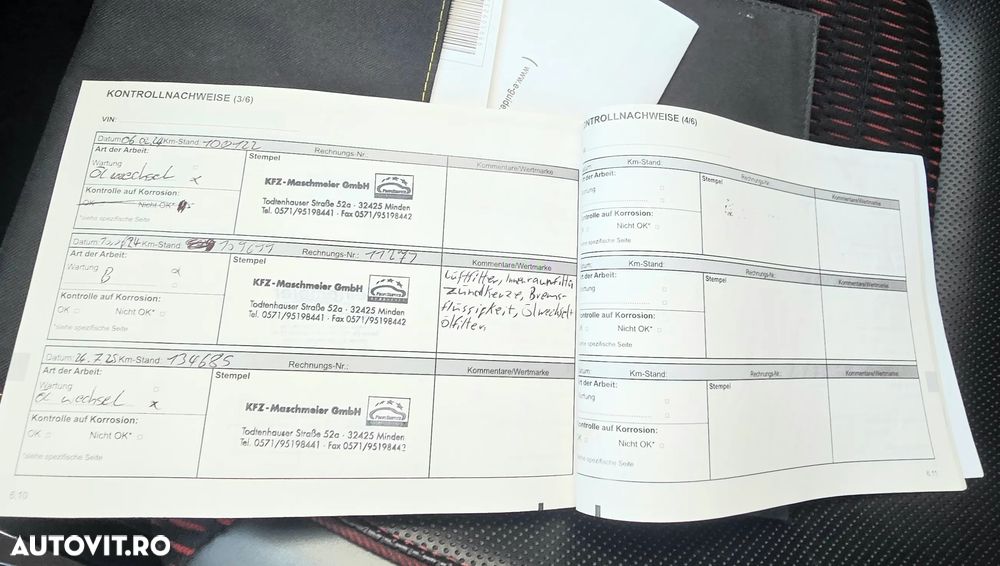 (www.e-guide
KONTROLLNACHWEISE (3/6)
VIN:
Datum: 06.02.24 Km-Stand: 100122
Art der Arbeit:
Rechnungs-Nr.:
Kommentare/Wertmarke
Wartung
Stempel
Ölwechsel x
KFZ-Maschmeier GmbH
Todtenhauser Straße 52a · 32425 Minden
Tel. 0571/95198441 · Fax 0571/95198442
Kontrolle auf Korrosion:
OK Nicht OK*
*siehe spezifische Seite
Datum: Km-Stand
Rechnungs-Nr.: 11277
Kommentare/Wertmarke
Art der Arbeit:
Stempel
Wartung
B
KFZ-Maschmeier GmbH
Todtenhauser Straße 52a · 32425 Minden
Tel. 0571/95198441 · Fax 0571/95198442
Luftfilter, Innenraumfilter
Zündkerze, Brems-
flüssigkeit, Ölwechsel+
Ölfilter
Kontrolle auf Korrosion:
OK Nicht OK*
*siehe spezifische Seite
Datum: 24.7.25 Km-Stand: 134685
Rechnungs-Nr.:
Kommentare/Wertmarke
Art der Arbeit:
Stempel
Wartung
Öl wechsel x
KFZ-Maschmeier GmbH
Todtenhauser Straße 52a · 32425 Minden
Tel. 0571/95198441 · Fax 0571/95198442
Kontrolle auf Korrosion:
OK Nicht OK*
*siehe spezifische Seite
6.10
ONTROLLNACHWEISE (4/6)
Km-Stand:
Rechnungs-Nr.:
Kommentare/Wertmarke
rt der Arbeit:
Stempel
artung
ontrolle auf Korrosion:
Nicht OK*
ehe spezifische Seite
Km-Stand:
Rechnungs-Nr.:
Kommentare/Wertmarke
rt der Arbeit:
Stempel
artung
ontrolle auf Korrosion:
Nicht OK*
ehe spezifische Seite
atum:
Km-Stand:
Rechnungs-Nr.:
Kommentare/Wertmarke
rt der Arbeit:
Stempel
artung
ontrolle auf Korrosion:
Nicht OK*
ehe spezifische Seite
6.11
AUTOVIT.RO